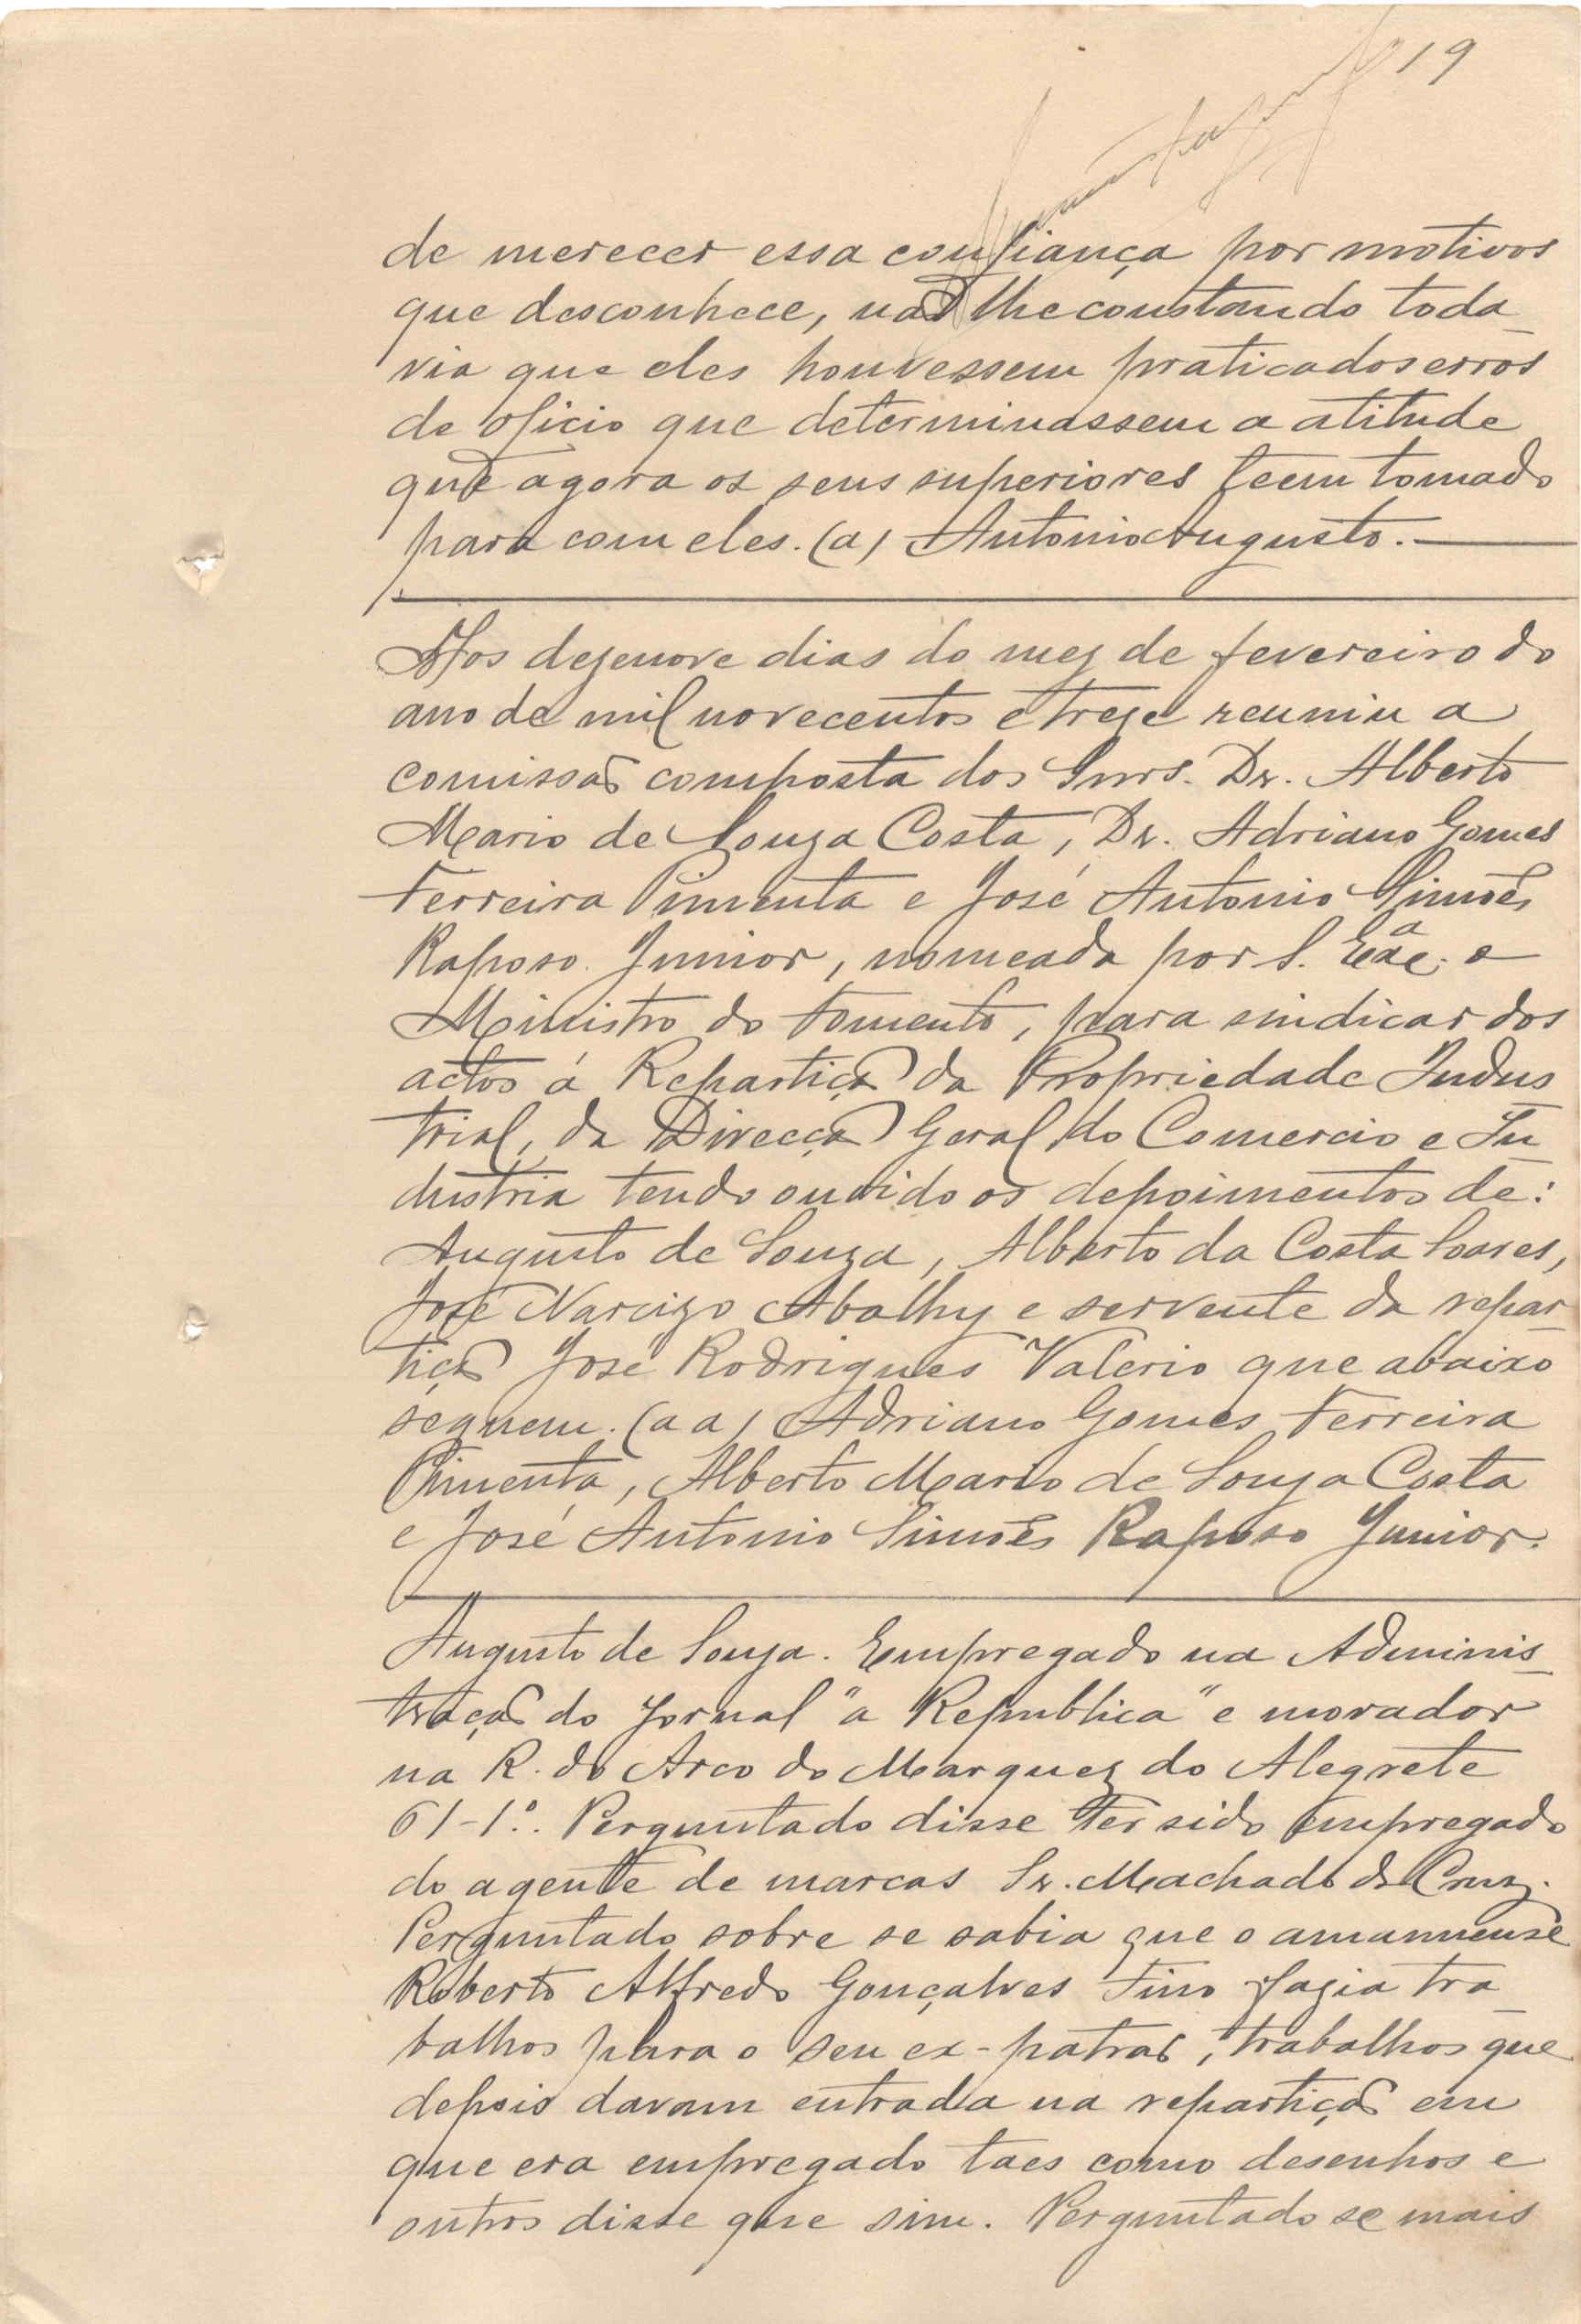 19
de merecer essa confiança por motivos
que desconhece, não lhe constando toda_
via que eles houvessem praticados erros
de oficio que determinassem a atitude
que agora os seus superiores teem tomado
para com eles. (a) Antonio Augusto.
Aos dezenove dias do mez de fevereiro do
ano de mil novecentos e treze reuniu a
comissão composta dos Snrs. Dr. Alberto
Mario de Souza Costa, Dr. Adriano Gomes
Ferreira Pimenta e José Antonio Simões
Raposo Junior, nomeada por S. Exª. o
Ministro do Fomento, para sindicar dos
actos á Repartição da Propriedade Indus
trial, da Direcção Geral do Comercio e In_
dustria tendo ouvido os depoimentos de:
Augusto de Souza, Alberto da Costa Soares,
José Narcizo Abathy e servente da repar_
tição José Rodrigues Valerio que abaixo
seguem. (a a) Adriano Gomes Ferreira
Pimenta, Alberto Mario de Souza Costa
e José Antonio Simões Raposo Junior.
Augusto de Souza. Empregado na Adminis_
tração do Jornal "a Republica" e morador
na R. do Arco do Marquez do Alegrete
61-1º. Perguntado disse ter sido empregado
do agente de marcas Sr. Machado da Cruz.
Perguntado sobre se sabia que o amanuense
Roberto Alfredo Gonçalves Tino fazia tra_
balhos para o seu ex-patrão, trabalhos que
depois davam entrada na repartição em
que era empregado taes como desenhos e
outros disse que sim. Perguntado se mais